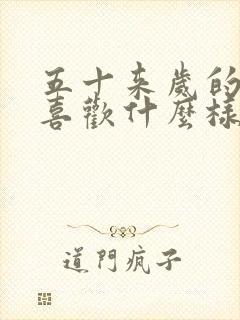 五十来歲的
喜歡什麼樣
道門疯子